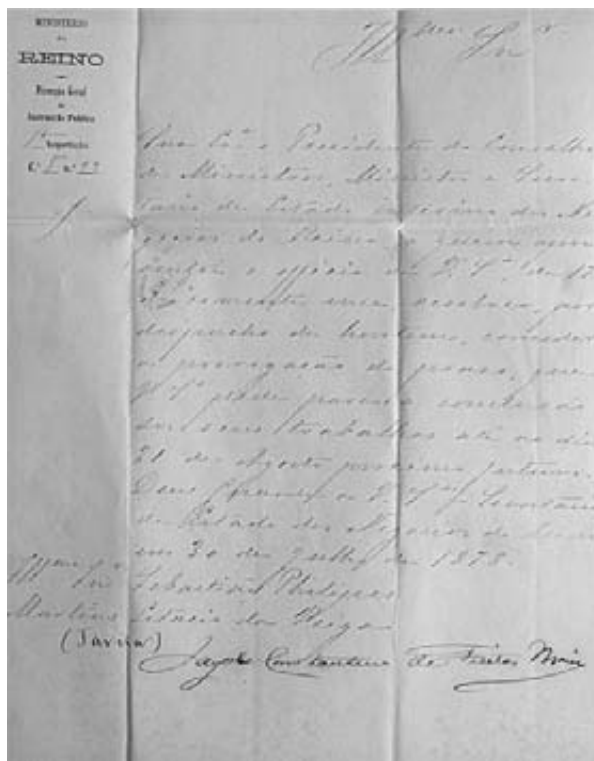 MINISTERIO
DO
REINO
Direcção Geral
de
Instrucção Publica
1ª Repartição
Sua Exª o Presidente do Conselho
de Ministros, Ministro e Secre-
taria de Estado interino dos Ne-
gocios do Reino a quem
o officio de V. Sª de 17
do corrente resolveu, por
despacho de hontem, conceder
a prorogação do prazo, para
V. Sª poder
dos seus trabalhos até ao dia
31 de Agosto proximo futuro.
Deus Guarde a V. Sª Secretaria
de Estado dos Negocios do Reino
em 30 de Julho de 1878.
Sebastião Philippes
Martins Estacio da Veiga
(Tavira)
Jayme Constantino de Freitas Moniz